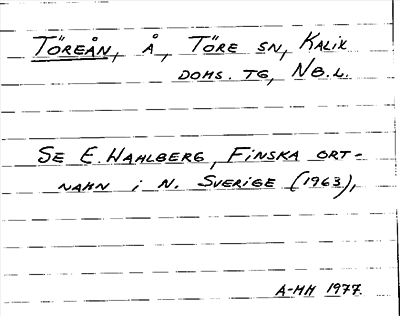 Töreån, å, Töre sn, Kalix
doms. tg, Nb. l.
Se E. Wahlberg, Finska ort-
namn i N. Sverige (1963),
A-MH 1977